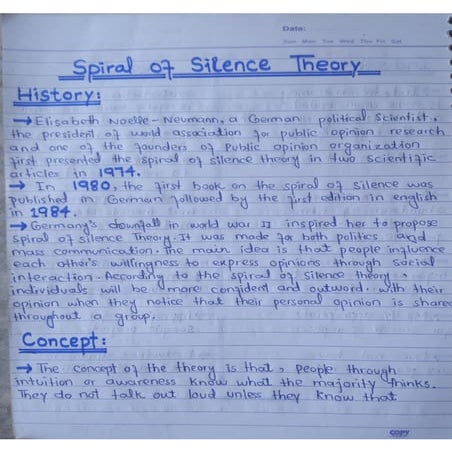 Date:
Sun Mon Tue Wed Thu Fri Sat
Spiral of Silence Theory
History:
→ Elisabeth Noelle-Neumann, a German political scientist,
the president of world association for public opinion research
and one of the founders of Public opinion organization
first presented the spiral of silence theory in two scientific
articles in 1974.
→ In 1980, the first book on the spiral of silence was
published in German followed by the first edition in english
in 1984.
→ Germany's downfall in world war II inspired her to propose
spiral of silence Theory. It was made for both politics and
mass communication. The main idea is that people influence
each other's willingness to express opinions through social
interaction. According to the spiral of silence theory,
individuals will be more confident and outword with their
opinion when they notice that their personal opinion is share
throughout a group.
Concept:
→ The concept of the theory is that, people through
intuition or awareness know what the majority thinks.
They do not talk out loud unless they know that
COPY